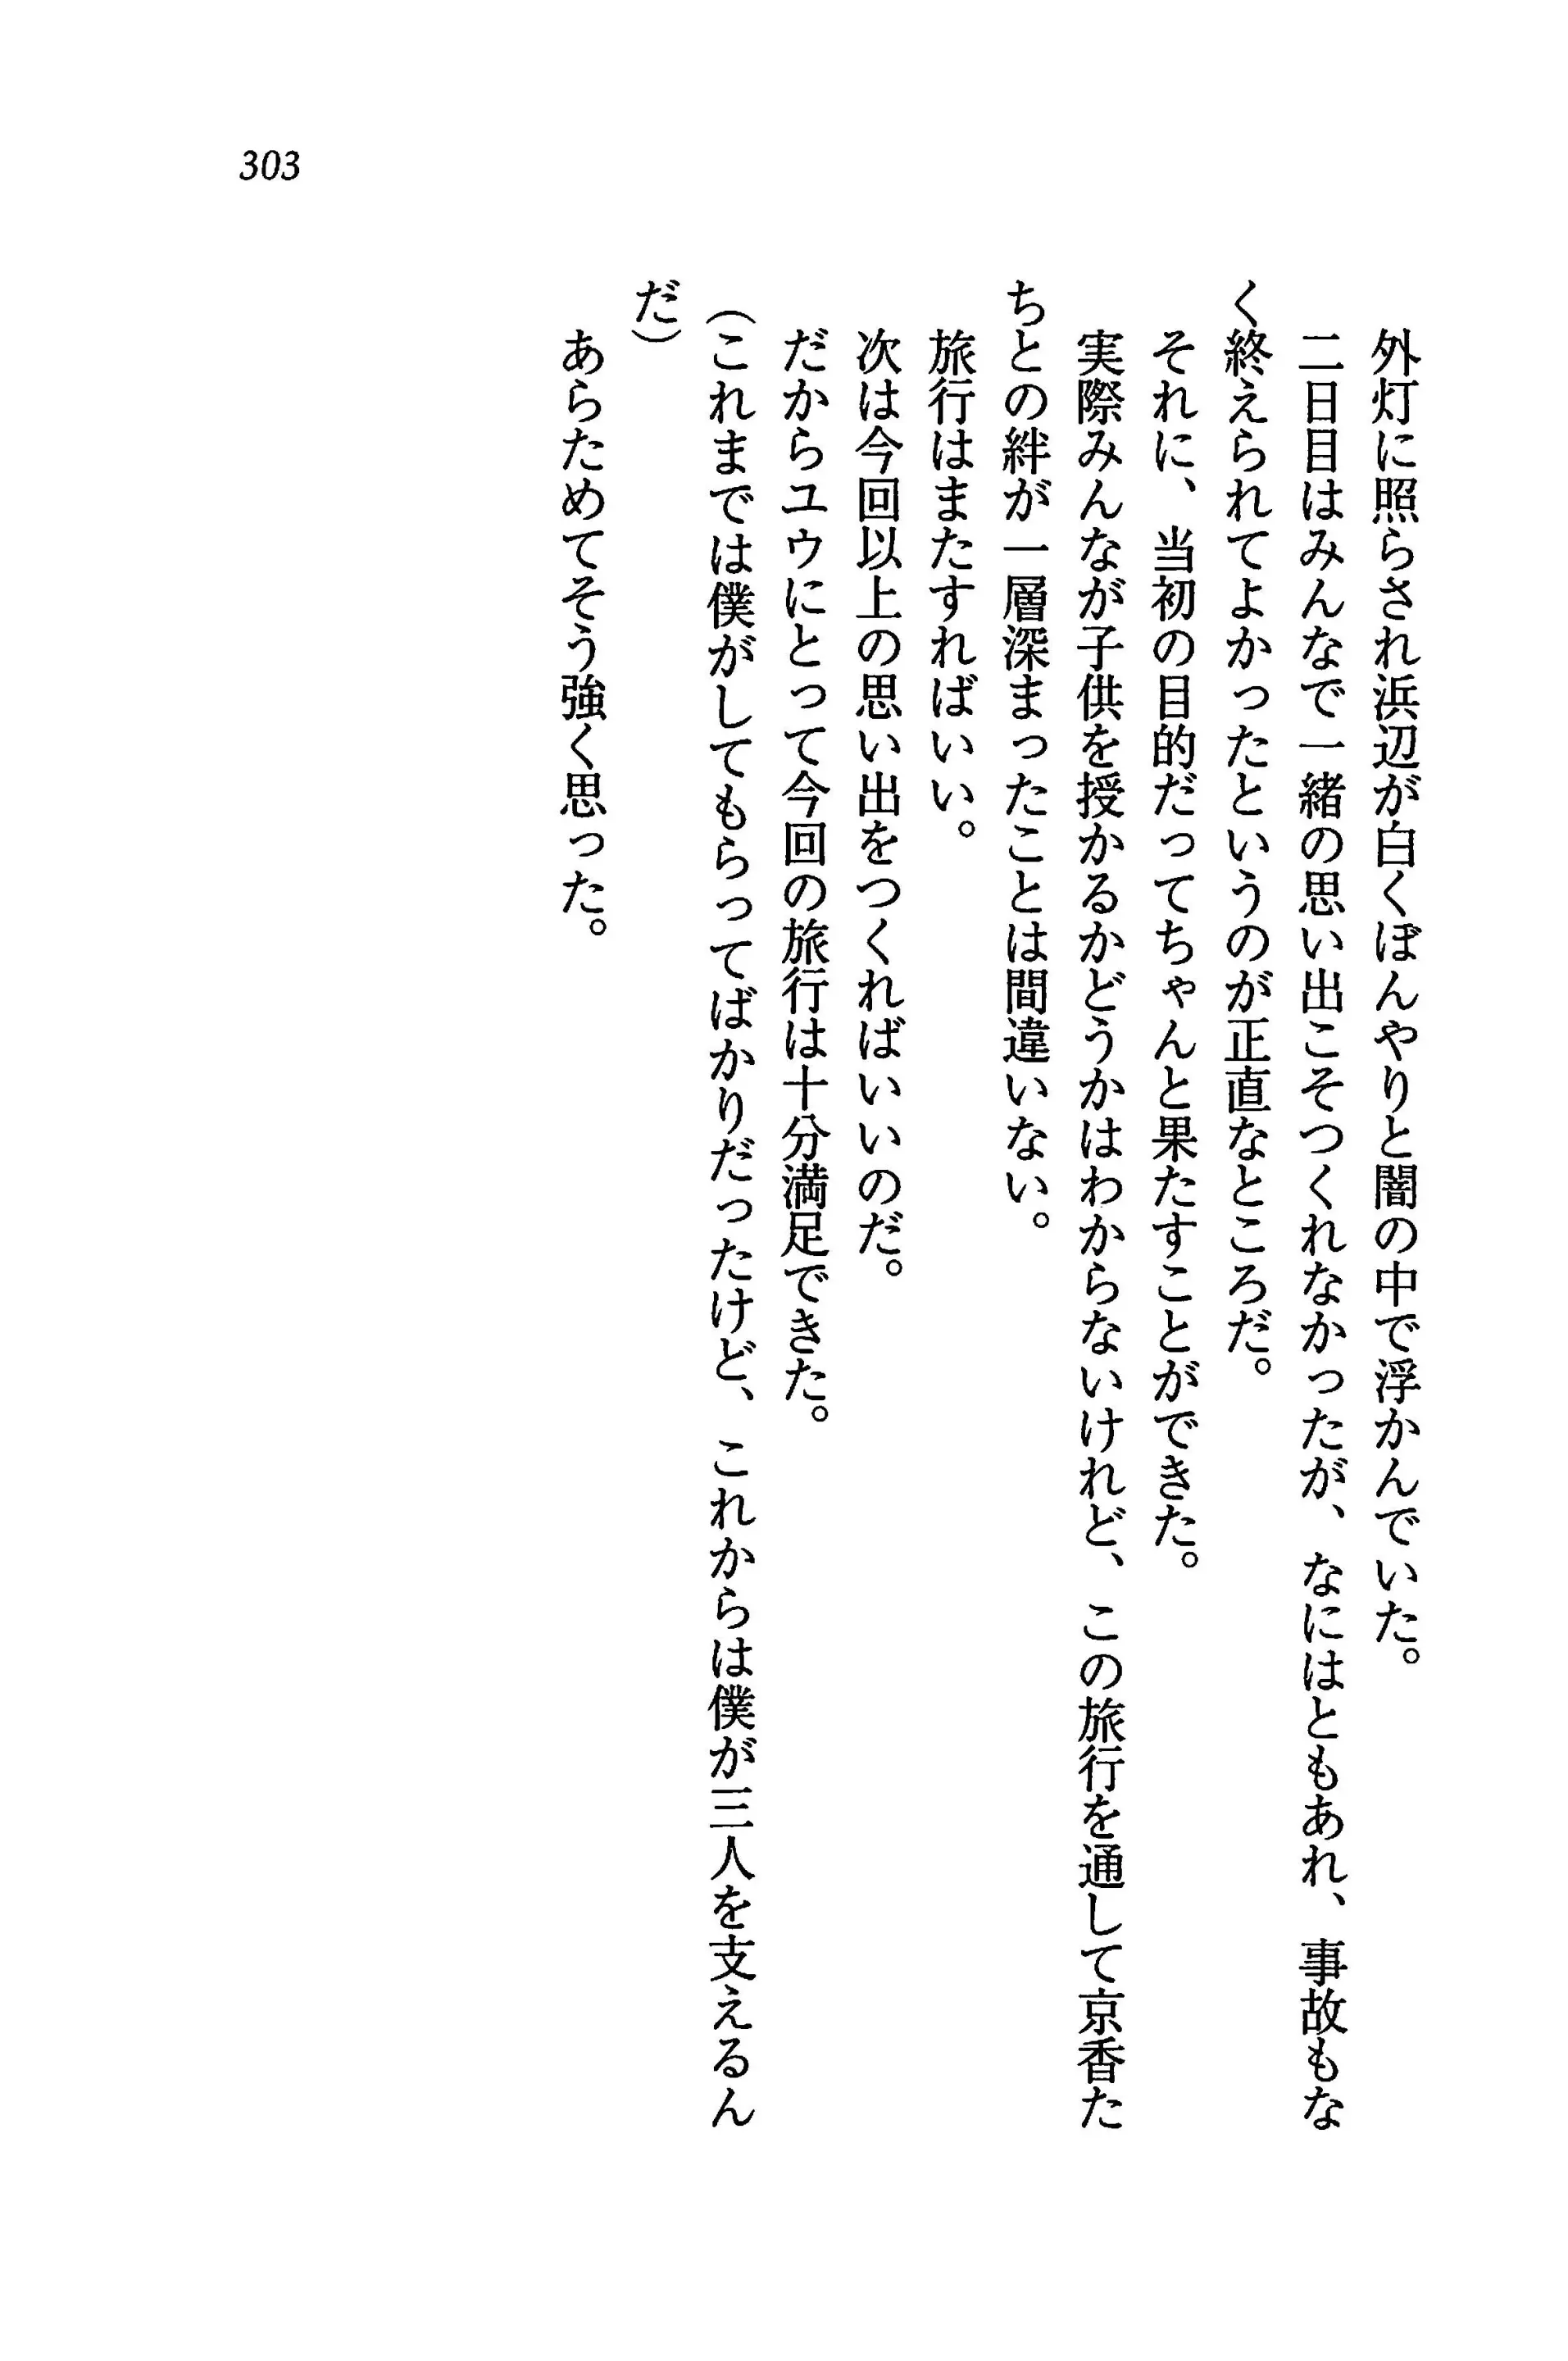 303
外灯に照らされ浜辺が白くぼんやりと闇の中で浮かんでいた。
二日目はみんなで一緒の思い出こそつくれなかったが、なにはともあれ、事故もな
く終えられてよかったというのが正直なところだ。
それに、当初の目的だってちゃんと果たすことができた。
実際みんなが子供を授かるかどうかはわからないけれど、この旅行を通して京香た
ちとの絆が一層深まったことは間違いない。
旅行はまたすればいい。
次は今回以上の思い出をつくればいいのだ。
だからユウにとって今回の旅行は十分満足できた。
（これまでは僕がしてもらってばかりだったけど、これからは僕が三人を支えるん
だ）
あらためてそう強く思った。